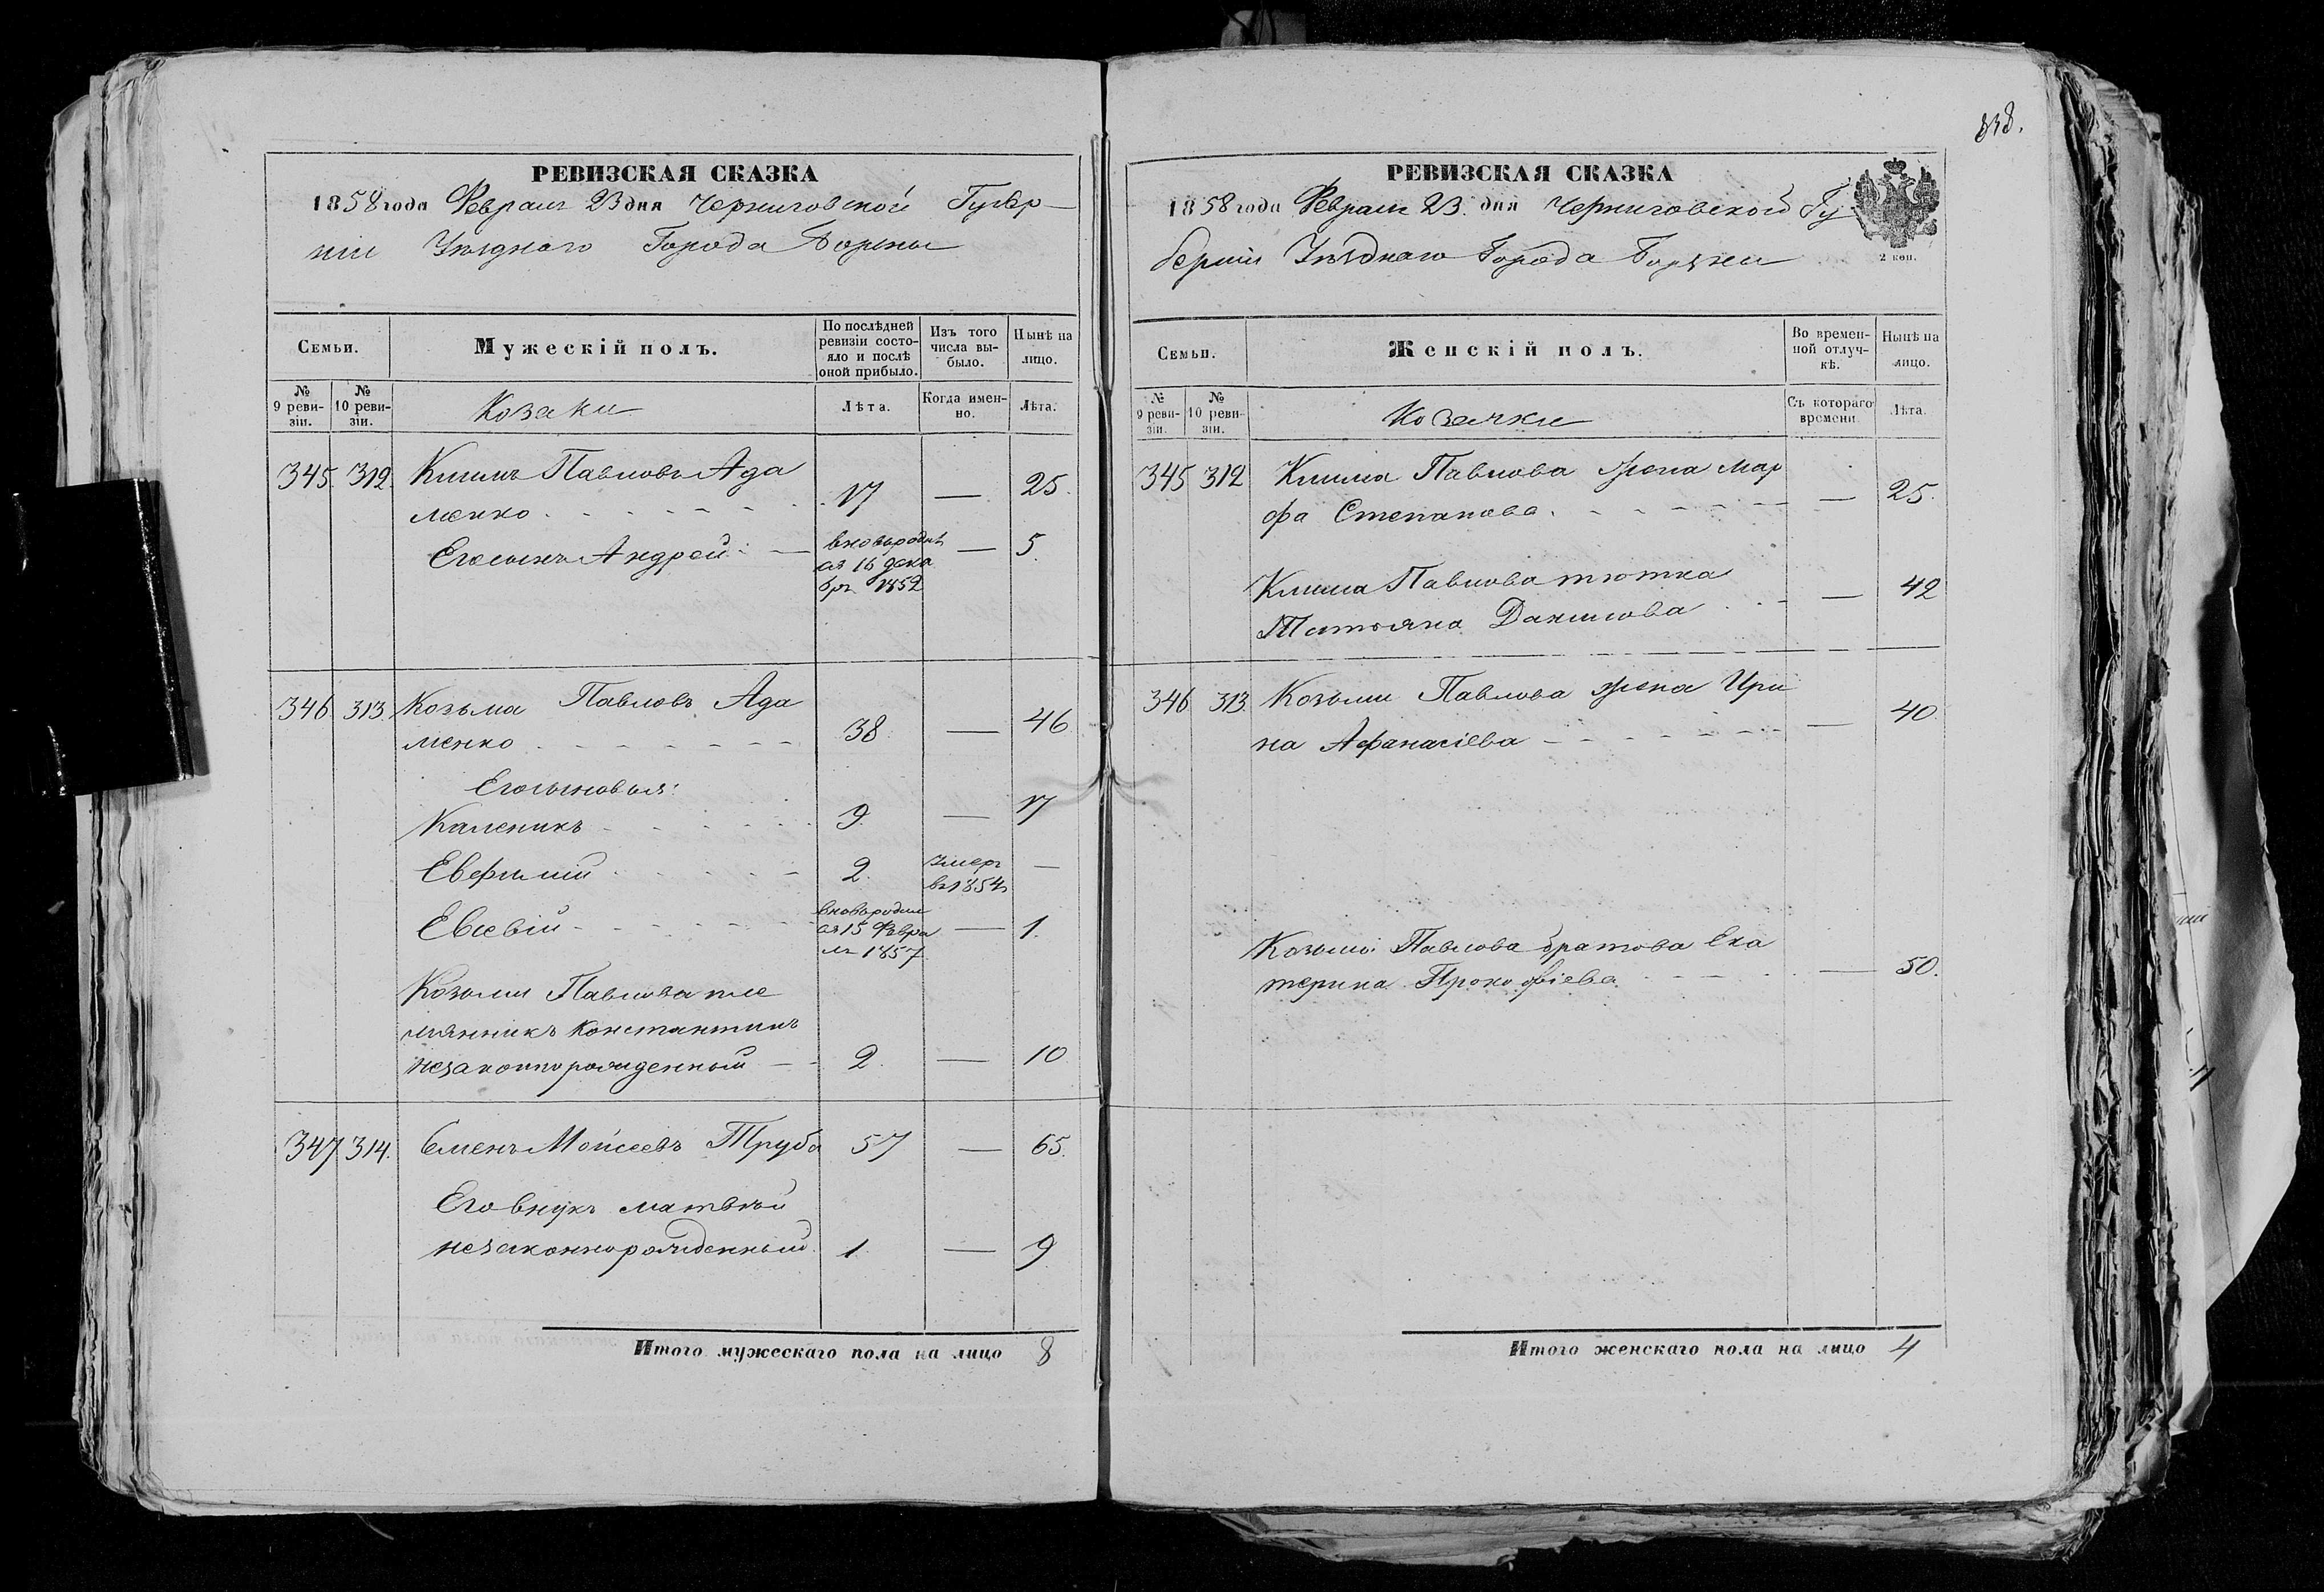 РЕВИЗСКАЯ СКАЗКА
1858 года Февраля 23 дня Черниговской Губер
ніи Уѣзднаго Города Борзны
Семьи.
Мужескій полъ.
По послѣдней
ревизіи состо-
яло и послѣ
оной прибыло.
Изъ того
числа вы-
было.
Нынѣ на
лицо.
№
9 реви-
зіи.
№
10 реви-
зіи.
Козаки
Лѣта.
Когда имен-
но.
Лѣта.
345. 312. Климъ Павловъ Ада
менко 17 — 25.
Его сынъ Андрей вновьрожде — 5.
въ 16 дека
бря 1852
346 313. Козьма Павловъ Ада
менко 38. — 46
Его сыновья:
Каленикъ 9. — 17
Евфимій 2. умеръ —
въ 1854
Евсевій вновьрожде — 1.
въ 15 Февра
ля 1857
Козьми Павлова пле
мянникъ Константинъ
незаконнорожденный 2. — 10
347 314. Семенъ Мойсеевъ Труба 57 — 65.
Его внукъ Матвѣй
незаконнорожденный. 1. — 9
Итого мужескаго пола на лицо 8
РЕВИЗСКАЯ СКАЗКА
1858 года Февраля 23. дня Черниговской Гу
берніи Уѣзднаго Города Борзны
2 коп.
Семьи.
Женскій полъ.
Во времен-
ной отлуч-
кѣ.
Нынѣ на
лицо.
№
9 реви-
зіи.
№
10 реви-
зіи.
Козачки
Съ котораго
времени
Лѣта.
345 312 Клима Павлова жена Мар
фа Степанова. — 25.
Клима Павлова тютка — 42
Татьяна Данилова
346 313. Козьми Павлова жена Ири
на Афанасіева — 40.
Козьми Павлова братова Ека
терина Прокофіева — 50.
Итого женскаго пола на лицо 4